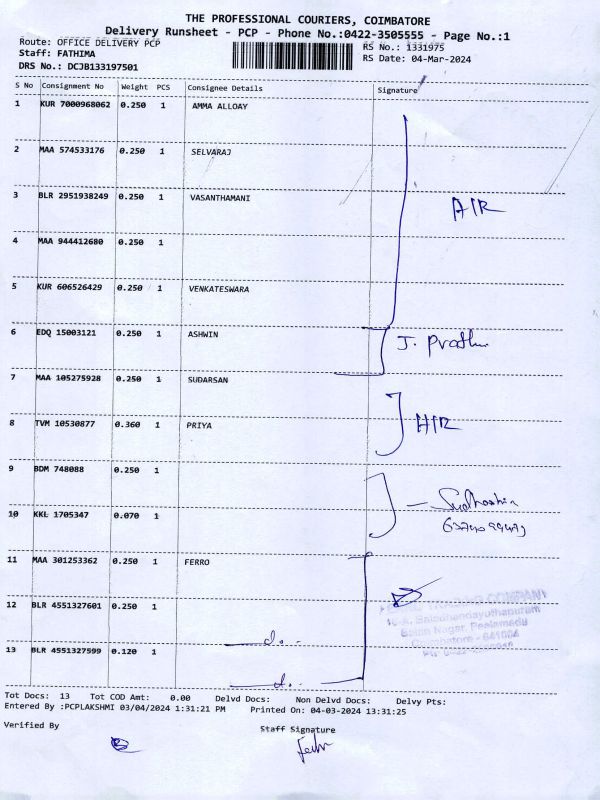 THE PROFESSIONAL COURIERS, COIMBATORE
Delivery Runsheet - PCP - Phone No.:0422-3505555 - Page No.:1
Route: OFFICE DELIVERY PCP
RS No.: 1331975
Staff: FATHIMA
RS Date: 04-Mar-2024
DRS No.: DCJB133197501
S No Consignment No Weight PCS Consignee Details Signature
1 KUR 7000968062 0.250 1 AMMA ALLOAY
2 MAA 574533176 0.250 1 SELVARAJ
3 BLR 2951938249 0.250 1 VASANTHAMANI
AIR
4 MAA 944412680 0.250 1
5 KUR 606526429 0.250 1 VENKATESWARA
6 EDQ 15003121 0.250 1 ASHWIN
7 MAA 105275928 0.250 1 SUDARSAN
8 TVM 10530877 0.360 1 PRIYA
AIR
9 BDM 748088 0.250 1
10 KKL 1705347 0.070 1
11 MAA 301253362 0.250 1 FERRO
12 BLR 4551327601 0.250 1
d.
13 BLR 4551327599 0.120 1
d.
Tot Docs: 13 Tot COD Amt: 0.00 Delvd Docs: Non Delvd Docs: Delvy Pts:
Entered By :PCPLAKSHMI 03/04/2024 1:31:21 PM Printed On: 04-03-2024 13:31:25
Verified By Staff Signature